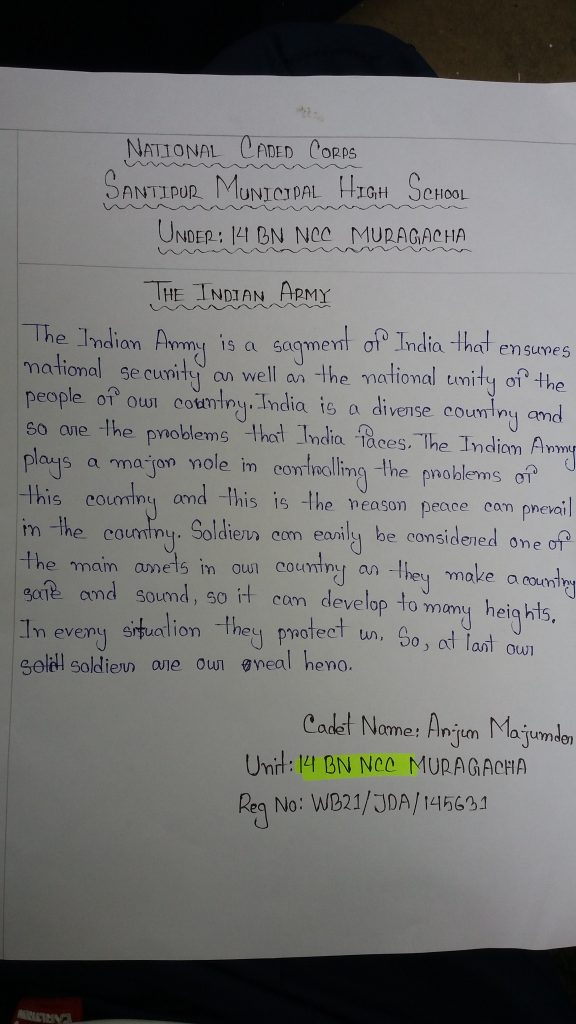 NATIONAL CADED CORPS
SANTIPUR MUNICIPAL HIGH SCHOOL
UNDER: 14 BN NCC MURAGACHA
THE INDIAN ARMY
The Indian Army is a sagment of India that ensures
national security as well as the national unity of the
people of our country. India is a diverse country and
so are the problems that India faces. The Indian Army
plays a major role in controlling the problems of
this country and this is the reason peace can prevail
in the country. Soldiers can easily be considered one of
the main assets in our country as they make a country
safe and sound, so it can develop to many heights.
In every situation they protect us. So, at last our
soldiers are our real hero.
Cadet Name: Arjun Majumder
Unit: 14 BN NCC MURAGACHA
Reg No: WB21/JDA/145631